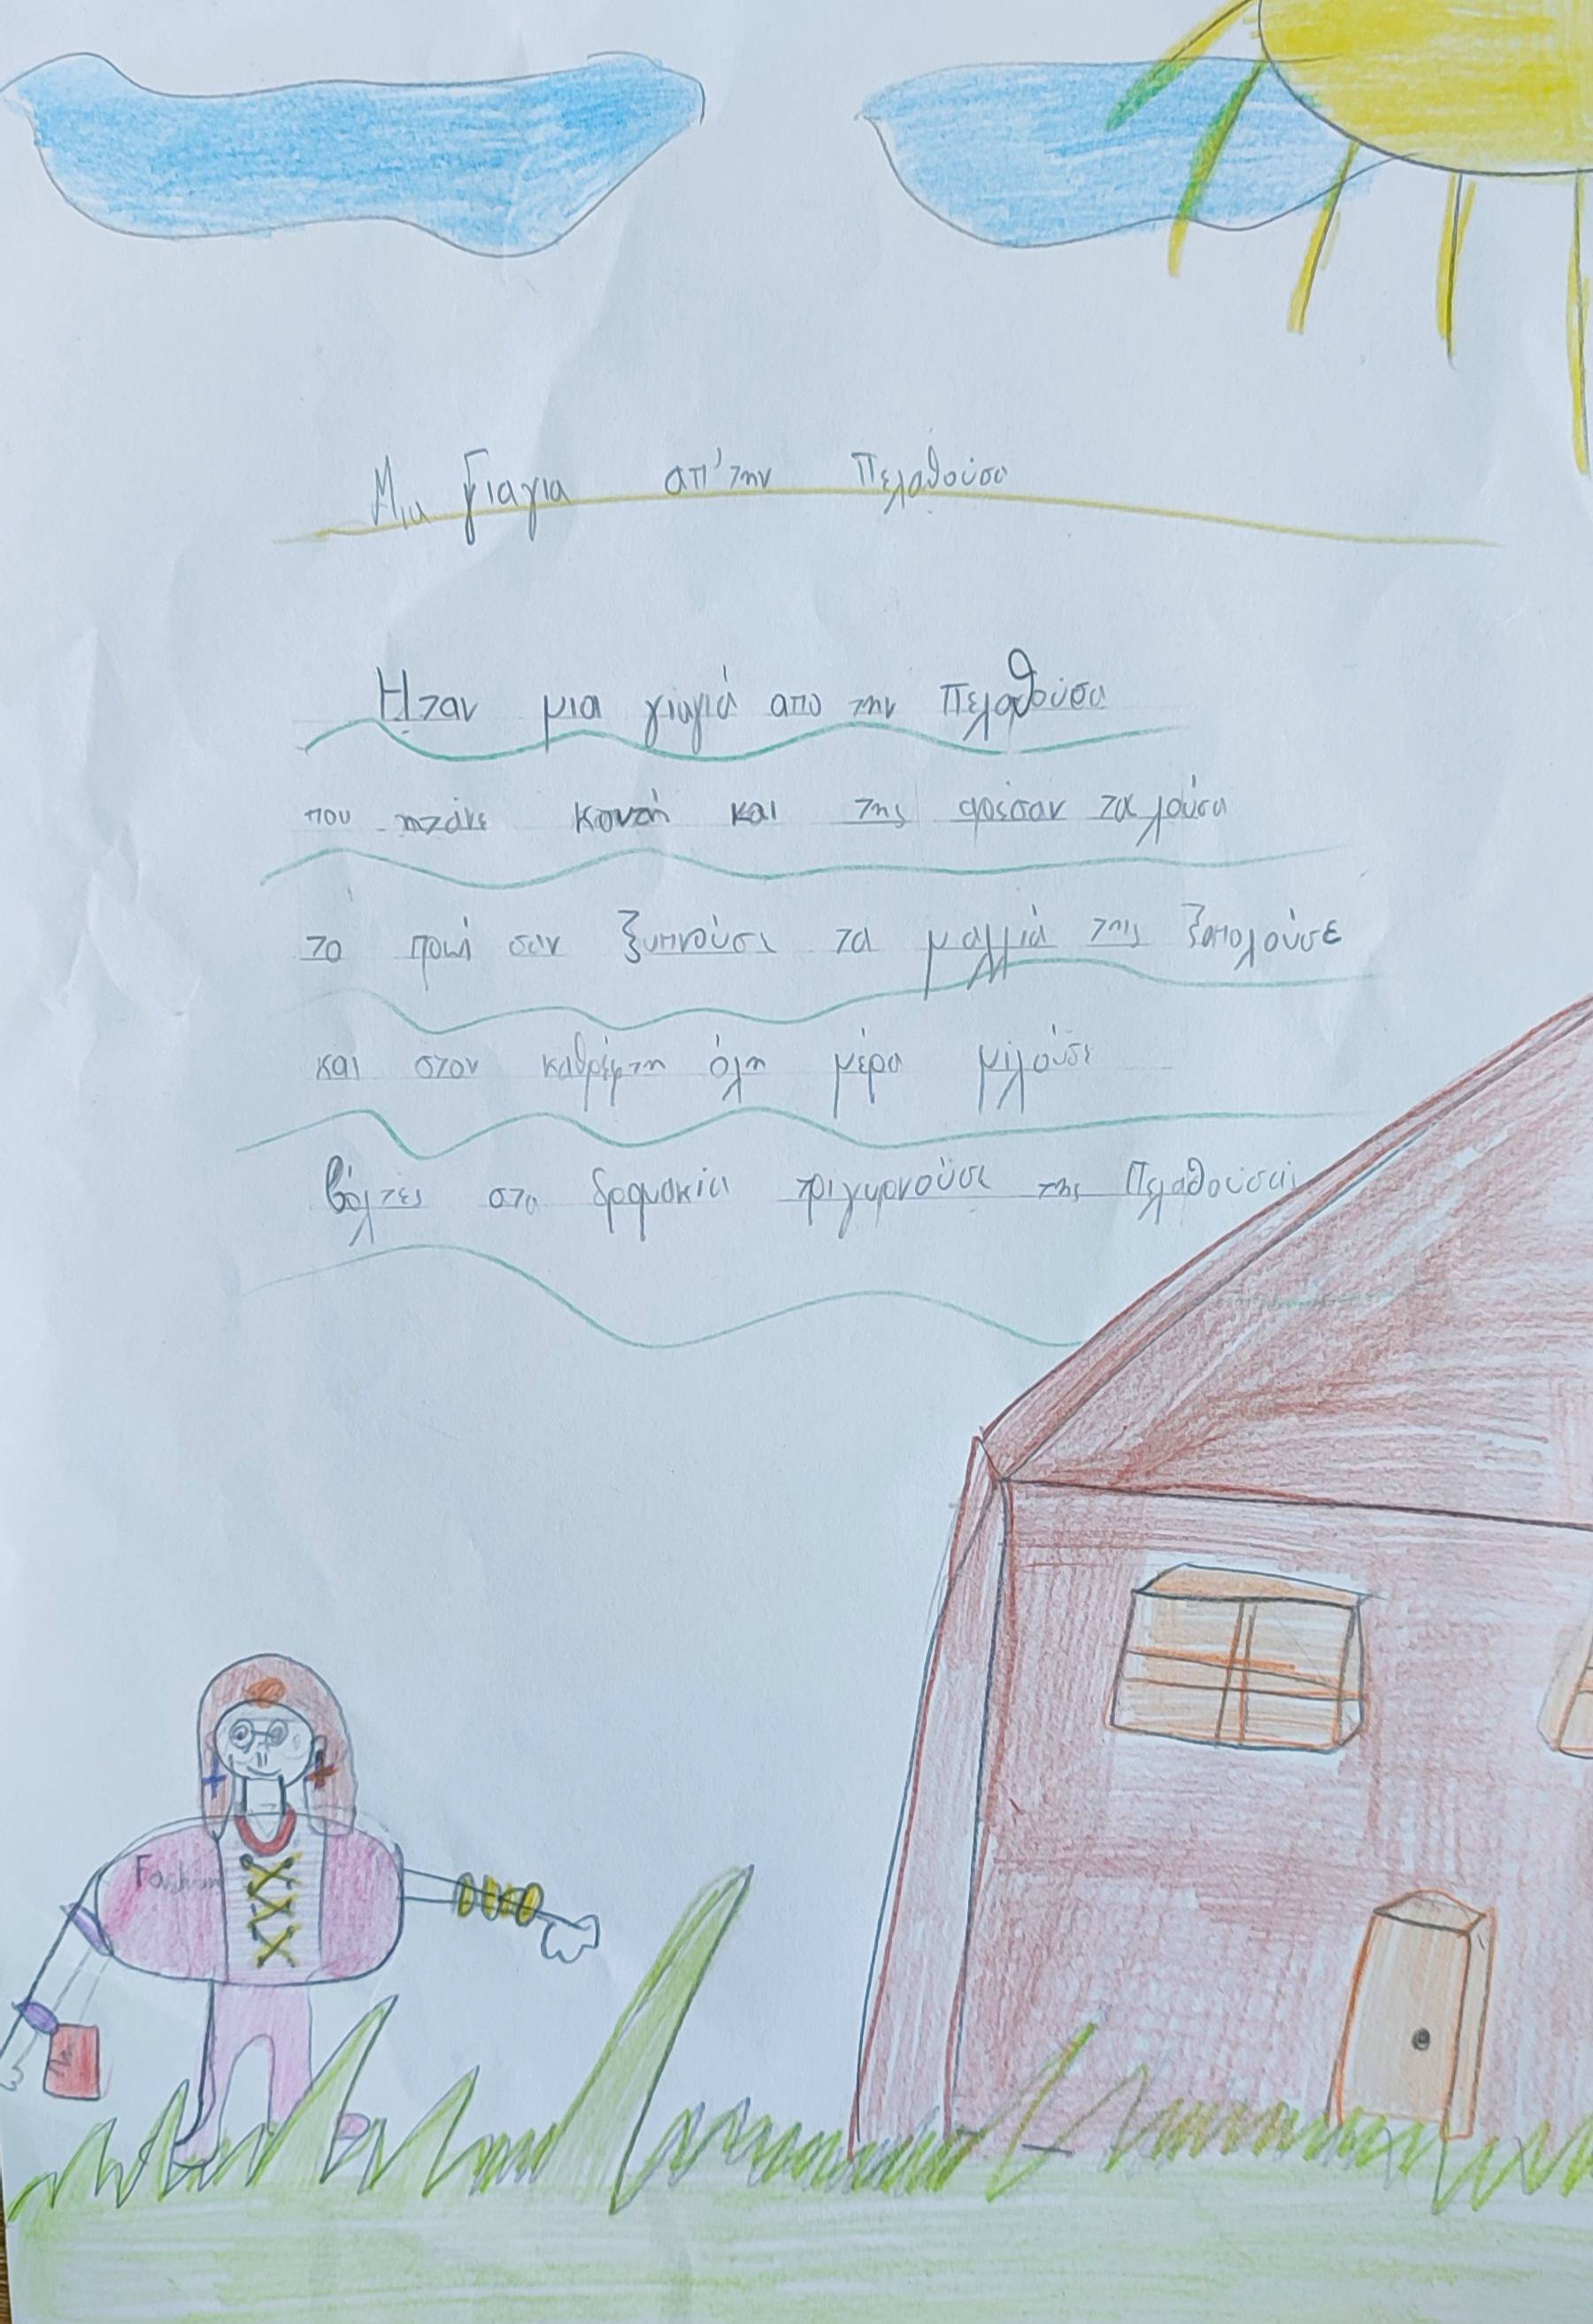 Μια Γιαγια απ' την Πελαθούσα
Ηταν μια γιαγιά απο την Πελαθούσα
που ητάνε κοντή και της φρέσαν τα λούσα
το πρωί σαν ξυπνούσε τα μαλλιά της ξαπολούσε
και στον καθρέφτη όλη μέρα μιλούσε
βόλτες στα δρομακια τριγυρνούσε της Πελαθούσας
Fashion